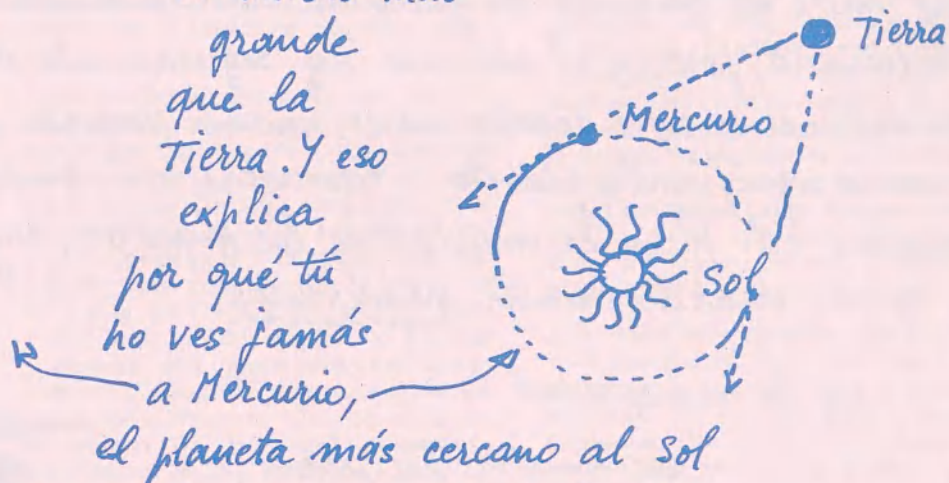 grande
que la
Tierra Y eso
explica
por qué tú
no ves jamás
a Mercurio,
el planeta más cercano al Sol
Tierra
Mercurio
Sol